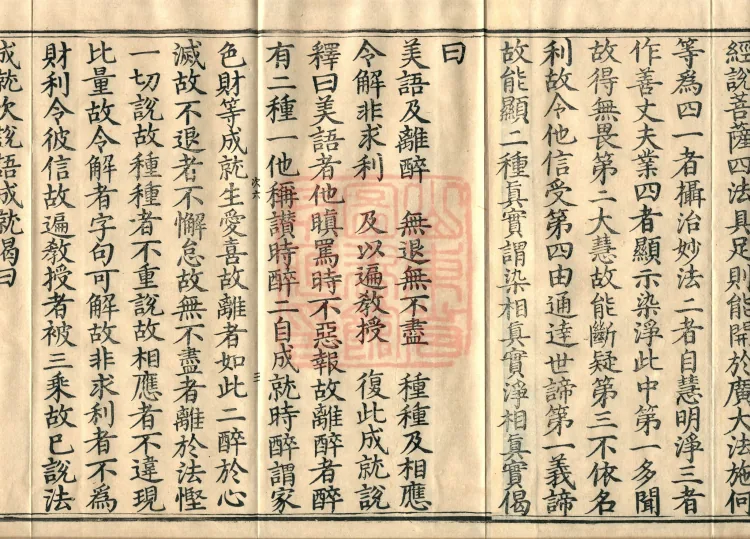 經說菩薩四法具足則能開於廣大法施何
等為四一者攝治妙法二者自慧明淨三者
作善丈夫業四者顯示染淨此中第一多聞
故得無畏第二大慧故能斷疑第三不依名
利故令他信受第四由通達世諦第一義諦
故能顯二種真實謂染相真實淨相真實偈
曰
美語及離醉　無退無不盡　種種及相應
令解非求利　及以遍教授　復此成就說
釋曰美語者他瞋罵時不惡報故離醉者醉
有二種一他稱讃時醉二自成就時醉謂家
色財等成就生愛喜故離者如此二醉於心
滅故不退者不懈怠故無不盡者離於法慳
一切說故種種者不重說故相應者不違現
比量故令解者字句可解故非求利者不為
財利令彼信故遍教授者被三乘故已說法
成就次說語成就偈曰